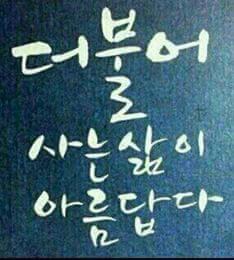 더불어
사는 삶이
아름답다